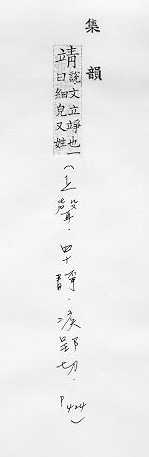 集韻
靖說文立竫也一曰細皃又姓(上聲．四十靜．疾郢切．P424)